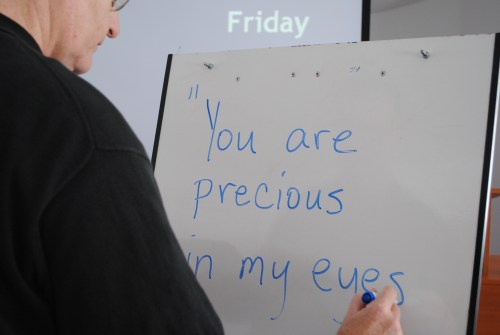 Friday
"You are
precious
in my eyes